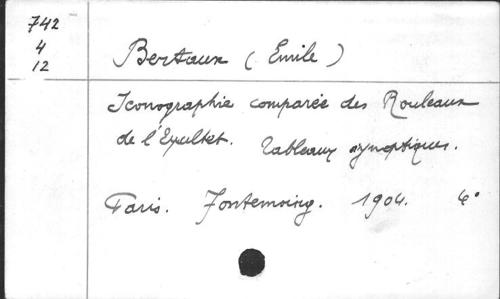 742
4
12
Bertaux (Emile)
Iconographie comparée des Rouleaux
de l'Exultet. Tableaux synoptiques.
Paris. Fontemoing. 1904. 4°